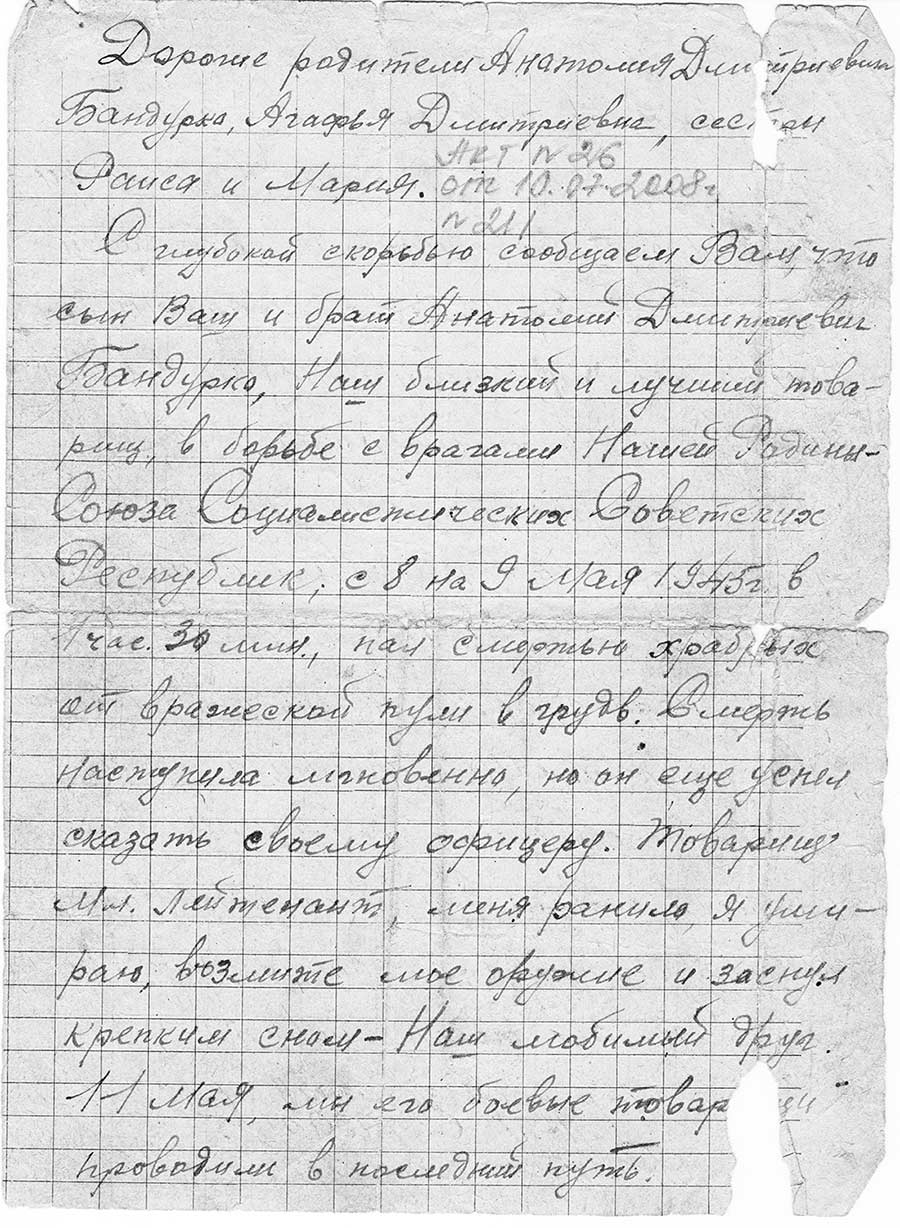 Дорогие родители Анатолия Дмитриевича
Бандурко, Агафья Дмитриевна, сестры
Раиса и Мария.
Акт N 26
от 10.07.2008г.
N 211
С глубокой скорбью сообщаем Вам, что
сын Ваш и брат Анатолий Дмитриевич
Бандурко, Наш близкий и лучший това-
рищ, в борьбе с врагами Нашей Родины-
Союза Социалистических Советских
Республик, с 8 на 9 Мая 1945г. в
1 час. 30 мин., пал смертью храбрых
от вражеской пули в грудь. Смерть
наступила мгновенно, но он еще успел
сказать своему офицеру. Товарищ
Мл. Лейтенант, меня ранило, я уми-
раю, возмите мое оружие и заснул
крепким сном- Наш любимый друг.
11 Мая, мы его боевые товарищи
проводили в последний путь.